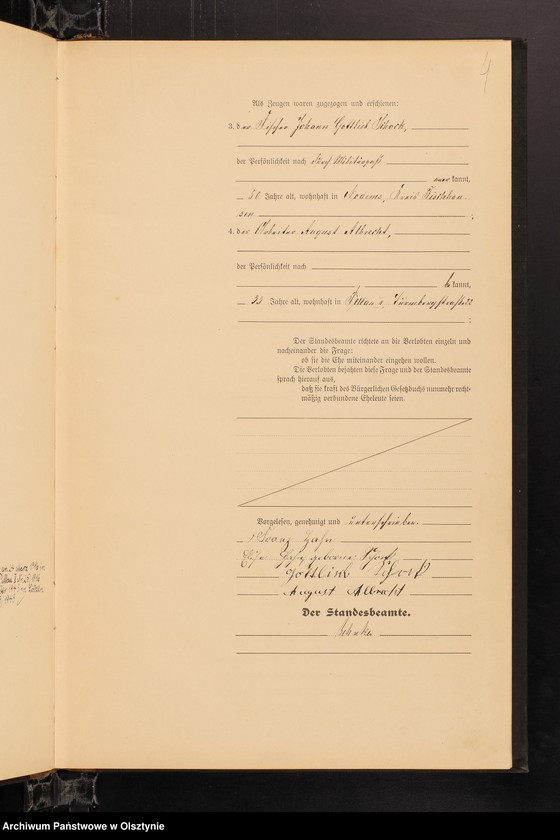 4
Als Zeugen waren zugezogen und erschienen:
3. der Fischer Johann Gottlieb Schock,
der Persönlichkeit nach durch Militärpaß
anerkannt,
50 Jahre alt, wohnhaft in Nodems, Kreis Fischhau-
sen;
4. der Arbeiter August Albrecht,
der Persönlichkeit nach
bekannt,
Jahre alt, wohnhaft in Pillau 2, 22
;
Der Standesbeamte richtete an die Verlobten einzeln und
nacheinander die Frage:
ob sie die Ehe miteinander eingehen wollen.
Die Verlobten bejahten diese Frage und der Standesbeamte
sprach hierauf aus,
daß sie kraft des Bürgerlichen Gesetzbuchs nunmehr recht-
mäßig verbundene Eheleute seien.
Vorgelesen, genehmigt und unterschrieben.
Franz Hahn
Hahn geborene Schock
Gottlieb Schock
August Albrecht
Der Standesbeamte.
Archiwum Państwowe w Olsztynie